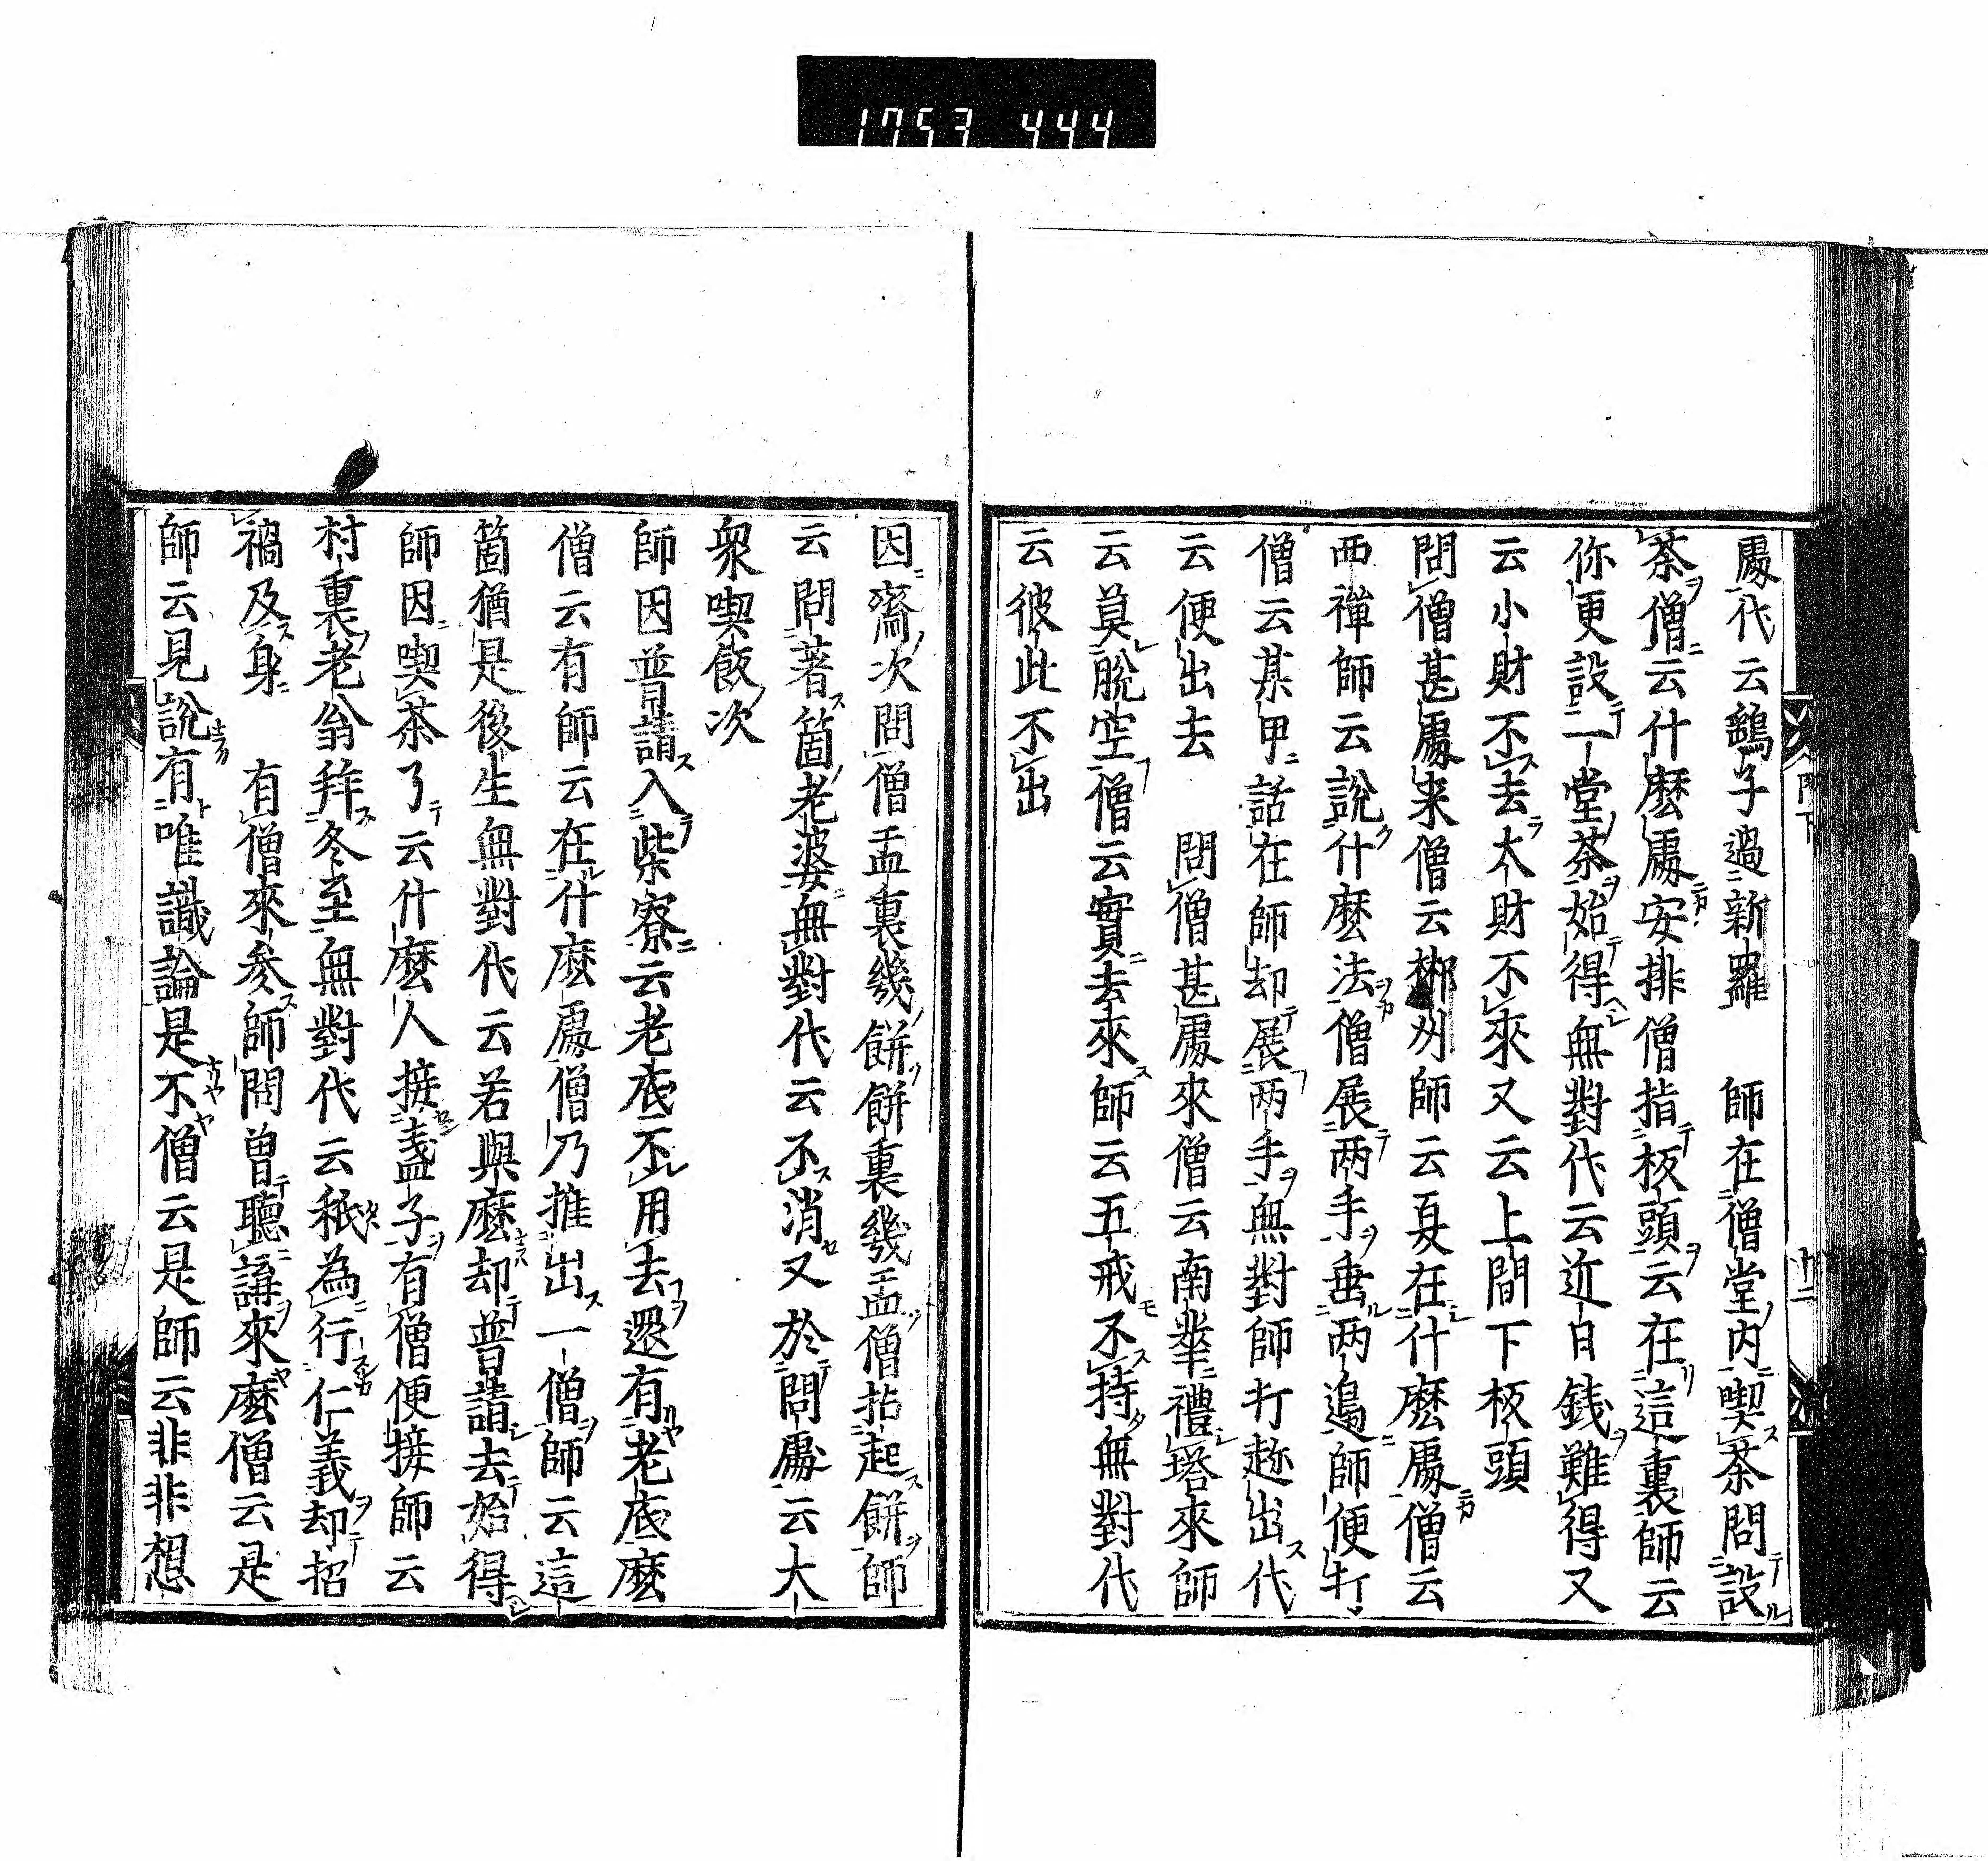 1753 444
處代云鷂子過新羅　師在僧堂内喫茶問設
茶僧云什麽處安排僧指板頭云在這裏師云
你更設一堂茶始得無對代云近日錢難得又
云小財不去大財不來又云上間下板頭
問僧甚處来僧云郴州師云夏在什麽處僧云
西禪師云說什麽法僧展两手垂两邉師便打
僧云某甲話在師却展两手無對師打趂出代
云便出去　問僧甚處來僧云南華禮塔來師
云莫脱空僧云實去來師云五戒不持無對代
云彼此不出
因齋次問僧盂裏幾餅餅裏幾盂僧拈起餅師
云問著箇老婆無對代云不消又於問處云大
衆喫飯次
師因普請入柴寮云老底不用去還有老底麽
僧云有師云在什麽處僧乃推出一僧師云這
箇猶是後生無對代云若與麽却普請去始得
師因喫茶了云什麽人接盞子有僧便接師云
村裏老翁拜冬至無對代云秖為行仁義却招
禍及身　有僧來參師問曾聽講來麽僧云是
師云見說有唯識論是不僧云是師云非非想